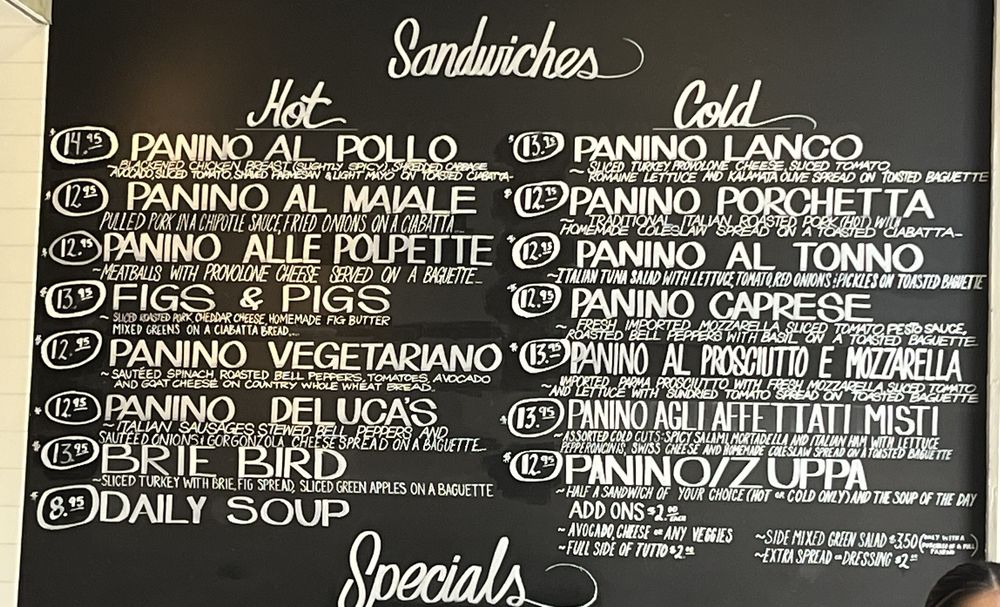 Sandwiches
Hot
$14.95 PANINO AL POLLO
~BLACKENED CHICKEN BREAST (SLIGHTLY SPICY) SHREDDED CABBAGE
AVOCADO, SLICED TOMATO, SHAVED PARMESAN & LIGHT MAYO ON TOASTED CIABATTA~
$12.95 PANINO AL MAIALE
PULLED PORK IN A CHIPOTLE SAUCE, FRIED ONIONS ON A CIABATTA....
$12.95 PANINO ALLE POLPETTE
~MEATBALLS WITH PROVOLONE CHEESE SERVED ON A BAGUETTE...
$13.95 FIGS & PIGS
~ SLICED ROASTED PORK, CHEDDAR CHEESE, HOMEMADE FIG BUTTER
MIXED GREENS ON A CIABATTA BREAD....
$12.95 PANINO VEGETARIANO
~SAUTÉED SPINACH, ROASTED BELL PEPPERS, TOMATOES, AVOCADO
AND GOAT CHEESE ON COUNTRY WHOLE WHEAT BREAD.
$12.95 PANINO DELUCA'S
~ITALIAN SAUSAGES, STEWED BELL PEPPERS AND
SAUTÉED ONIONS & GORGONZOLA CHEESE SPREAD ON A BAGUETTE...
$13.95 BRIE BIRD
~SLICED TURKEY WITH BRIE, FIG SPREAD, SLICED GREEN APPLES ON A BAGUETTE
$8.95 DAILY SOUP
Cold
$13.95 PANINO LANCO
~SLICED TURKEY PROVOLONE CHEESE, SLICED TOMATO,
ROMAINE LETTUCE AND KALAMATA OLIVE SPREAD ON TOASTED BAGUETTE
$12.95 PANINO PORCHETTA
~ TRADITIONAL ITALIAN ROASTED PORK (HOT) WITH
HOMEMADE COLESLAW SPREAD ON A TOASTED CIABATTA~
$12.95 PANINO AL TONNO
~ITALIAN TUNA SALAD WITH LETTUCE, TOMATO, RED ONIONS & PICKLES ON TOASTED BAGUETTE
$12.95 PANINO CAPRESE
~ FRESH IMPORTED MOZZARELLA SLICED TOMATO, PESTO SAUCE,
ROASTED BELL PEPPERS WITH BASIL ON A TOASTED BAGUETTE
$13.95 PANINO AL PROSCIUTTO E MOZZARELLA
~IMPORTED PARMA PROSCIUTTO WITH FRESH MOZZARELLA, SLICED TOMATO
AND LETTUCE WITH SUNDRIED TOMATO SPREAD ON TOASTED BAGUETTE
$13.95 PANINO AGLI AFFETTATI MISTI
~ASSORTED COLD CUTS-SPICY SALAMI, MORTADELLA AND ITALIAN HAM WITH LETTUCE
PEPPERONCINIS, SWISS CHEESE AND HOMEMADE COLESLAW SPREAD ON A TOASTED BAGUETTE
$12.95 PANINO/ZUPPA
~ HALF A SANDWICH OF YOUR CHOICE (HOT OR COLD ONLY) AND THE SOUP OF THE DAY
ADD ONS $2.00 EACH
~ AVOCADO, CHEESE OR ANY VEGGIES
~ FULL SIDE OF TUTTO $2.00
~SIDE MIXED GREEN SALAD $3.50 (ONLY WITH A PURCHASE OF A FULL PANINO)
~EXTRA SPREAD OR DRESSING $2.00
Specials